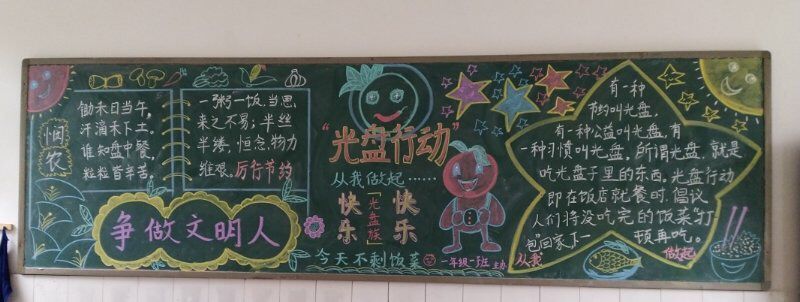 悯农
锄禾日当午，
汗滴禾下土，
谁知盘中餐，
粒粒皆辛苦。
一粥一饭，当思
来之不易；半丝
半缕，恒念物力
维艰。厉行节约
争做文明人
“光盘行动”
从我做起……
快乐
光盘族
快乐
今天不剩饭菜
一年级一班 主办
有一种
节约叫光盘，
有一种公益叫光盘，有
一种习惯叫光盘，所谓光盘，就是
吃光盘子里的东西，光盘行动
即在饭店就餐时，倡议
人们将没吃完的饭菜打
包回家下一
顿再吃。
从我
做起